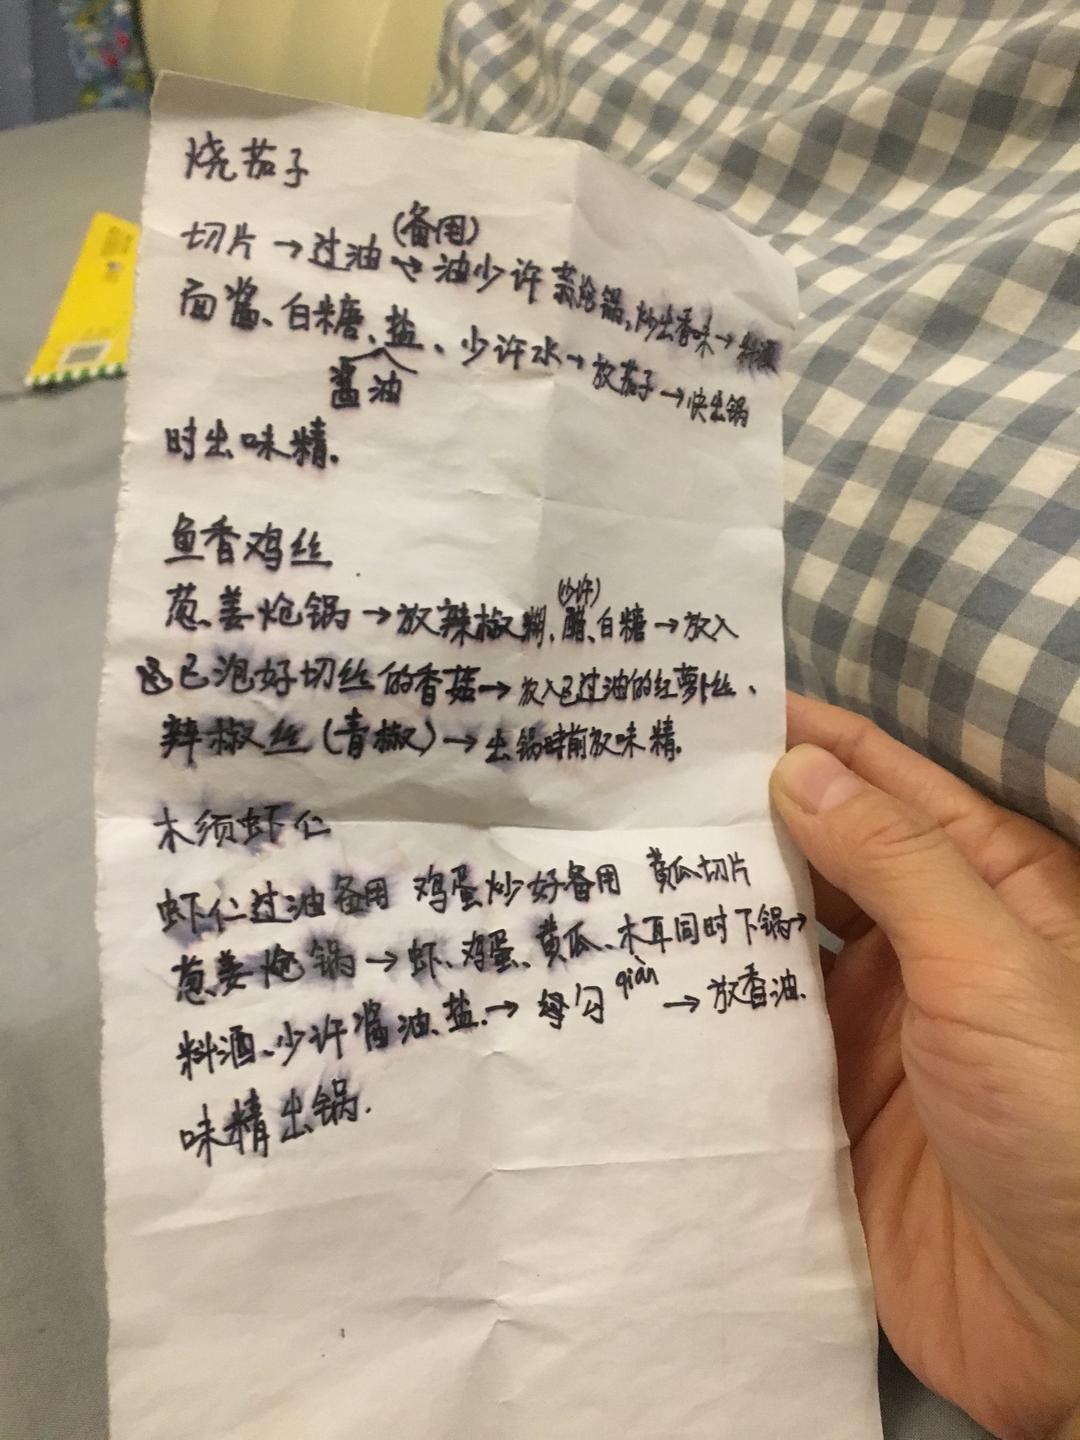 烧茄子
切片→过油(备用)→油少许 蒜炝锅,炒出香味→料酒
面酱、白糖、盐、酱油、少许水→放茄子→快出锅
时出味精.
鱼香鸡丝
葱姜炝锅→放辣椒糊、醋(少许)、白糖→放入
已泡好切丝的香菇→放入已过油的红萝卜丝、
辣椒丝(青椒)→出锅时前放味精.
木须虾仁
虾仁过油备用 鸡蛋炒好备用 黄瓜切片
葱姜炝锅→虾、鸡蛋、黄瓜、木耳同时下锅→
料酒、少许酱油、盐.→ 勾qiàn→放香油.
味精出锅.